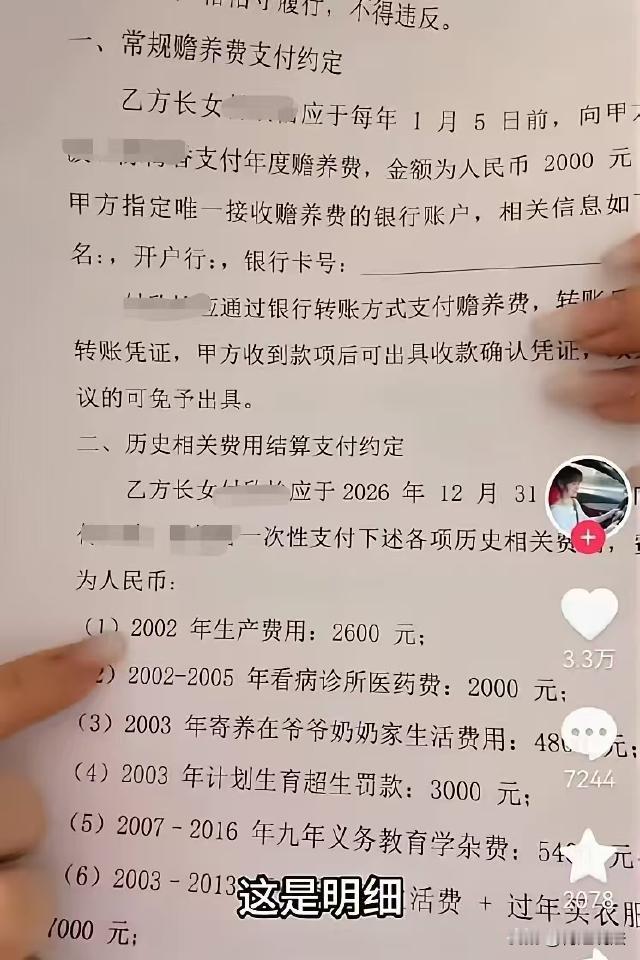 不得违反。
一、常规赡养费支付约定
乙方长女 应于每年 1 月 5 日前，向甲方
支付年度赡养费，金额为人民币 2000 元
甲方指定唯一接收赡养费的银行账户，相关信息如下
名：，开户行：，银行卡号：
应通过银行转账方式支付赡养费，转账
转账凭证，甲方收到款项后可出具收款确认凭证，
议的可免予出具。
二、历史相关费用结算支付约定
乙方长女 应于 2026 年 12 月 31
一次性支付下述各项历史相关费
为人民币：
（1）2002 年生产费用：2600 元；
2）2002-2005 年看病诊所医药费：2000 元；
（3）2003 年寄养在爷爷奶奶家生活费用：480 元；
（4）2003 年计划生育超生罚款：3000 元；
（5）2007－2016 年九年义务教育学杂费：54
（6）2003－2013 活费 + 过年买衣服
7000 元；
3.3万
7244
2078
这是明细